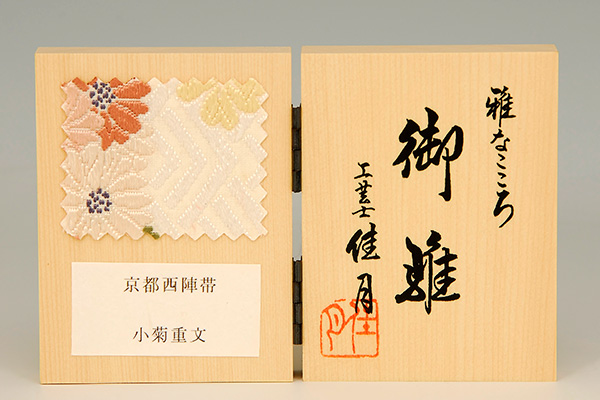 京都西陣帯
小菊重文
雅なこころ
御雛
工芸士 佳月
佳月